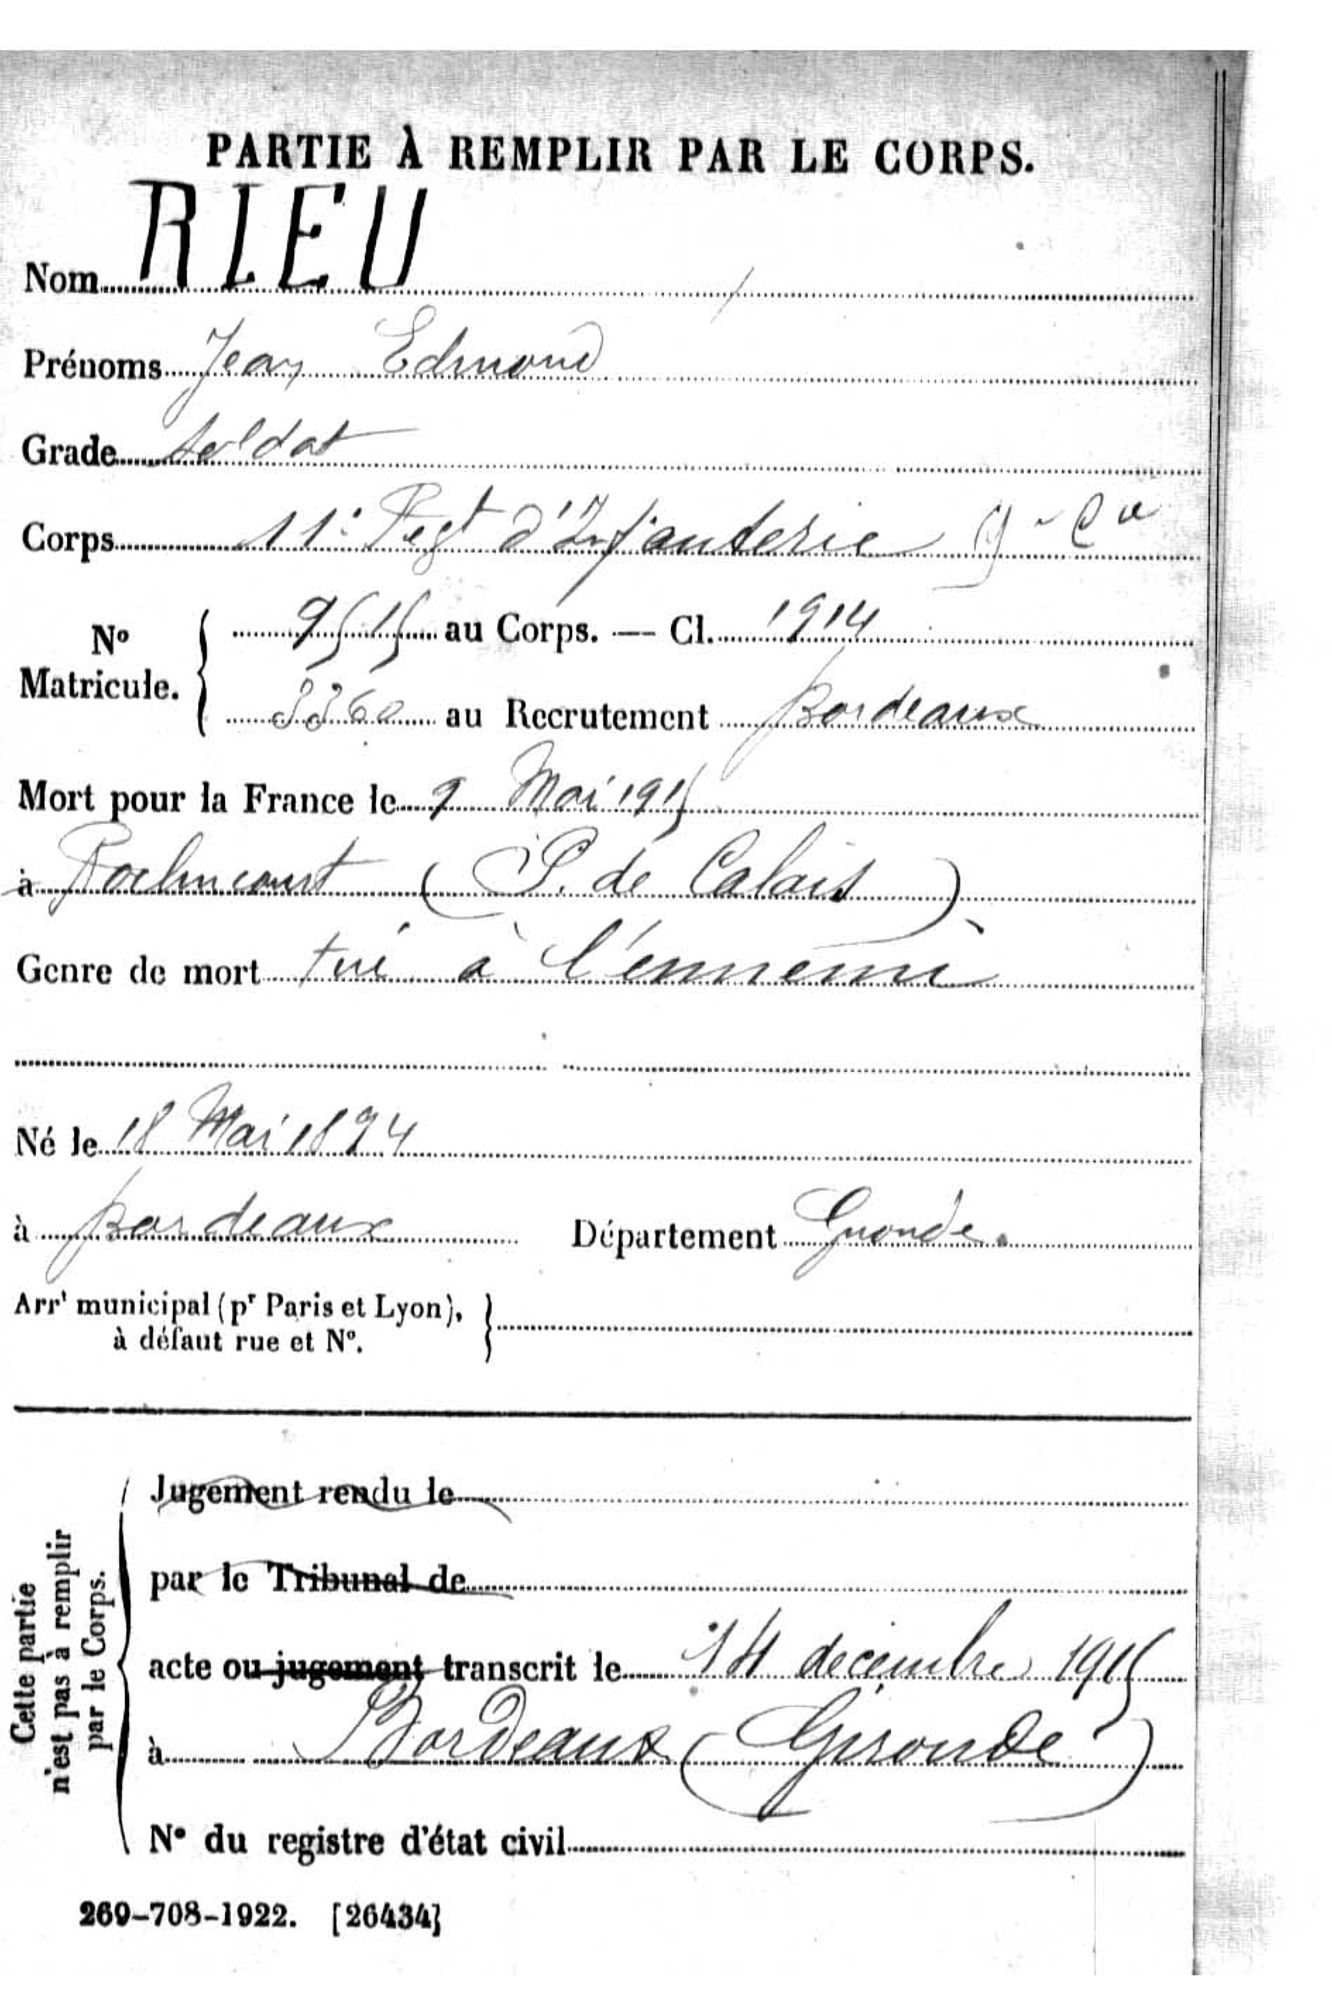 PARTIE À REMPLIR PAR LE CORPS.
Nom RIEU
Prénoms Jean Edmond
Grade soldat
Corps 11e Regt d'Infanterie 9e Cie
No Matricule. { 9515 au Corps. — Cl. 1914
3360 au Recrutement Bordeaux
Mort pour la France le 9 Mai 1915
à Roclincourt (P. de Calais)
Genre de mort tué à l'ennemi
Né le 18 Mai 1894
à Bordeaux Département Gironde.
Arrt municipal (pr Paris et Lyon), }
à défaut rue et No.
Cette partie n'est pas à remplir par le Corps. {
Jugement rendu le
par le Tribunal de
acte ou jugement transcrit le 14 décembre 1915
à Bordeaux (Gironde)
No du registre d'état civil
269-708-1922. [26434]